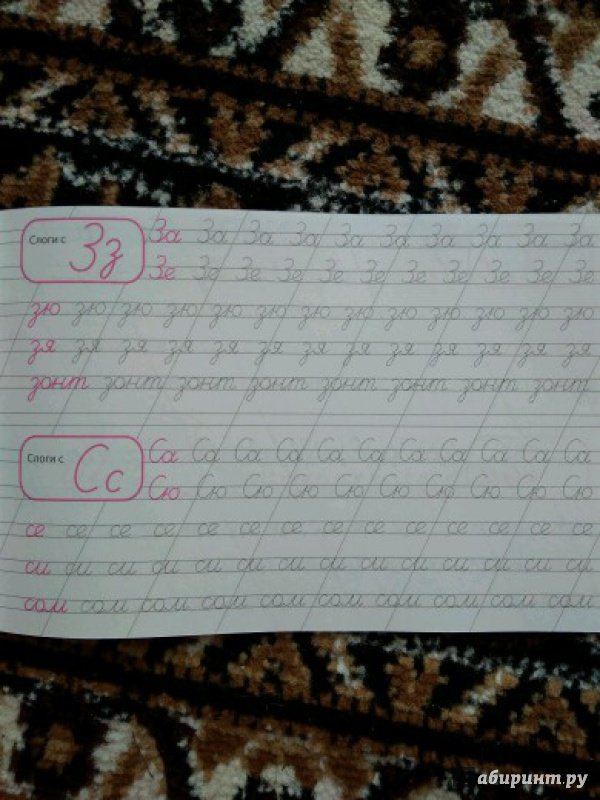 Слоги с Зз За За За За За За За За За За
Зе Зе Зе Зе Зе Зе Зе Зе Зе Зе Зе
зю зю зю зю зю зю зю зю зю зю зю зю зю
зя зя зя зя зя зя зя зя зя зя зя зя зя
зонт зонт зонт зонт зонт зонт зонт зонт
Слоги с Сс Са Са Са Са Са Са Са Са Са Са Са
Сю Сю Сю Сю Сю Сю Сю Сю Сю Сю
се се се се се се се се се се се се се се
си си си си си си си си си си си си си си
сом сом сом сом сом сом сом сом сом сом
абиринт.ру